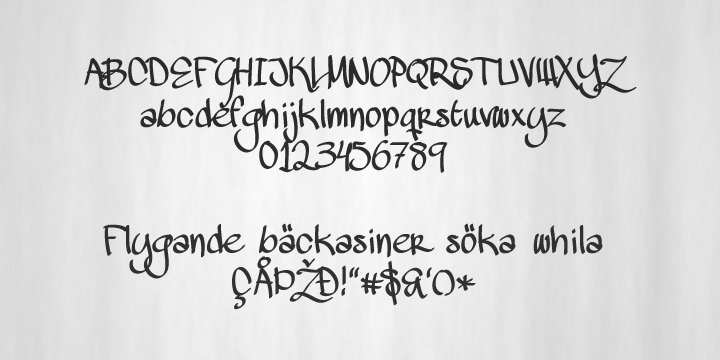 ABCDEFGHIJKLMNOPQRSTUVWXYZ
abcdefghijklmnopqrstuvwxyz
0123456789
Flygande bäckasiner söka whila
ÇÅÞŽÐ!"#$&'()*